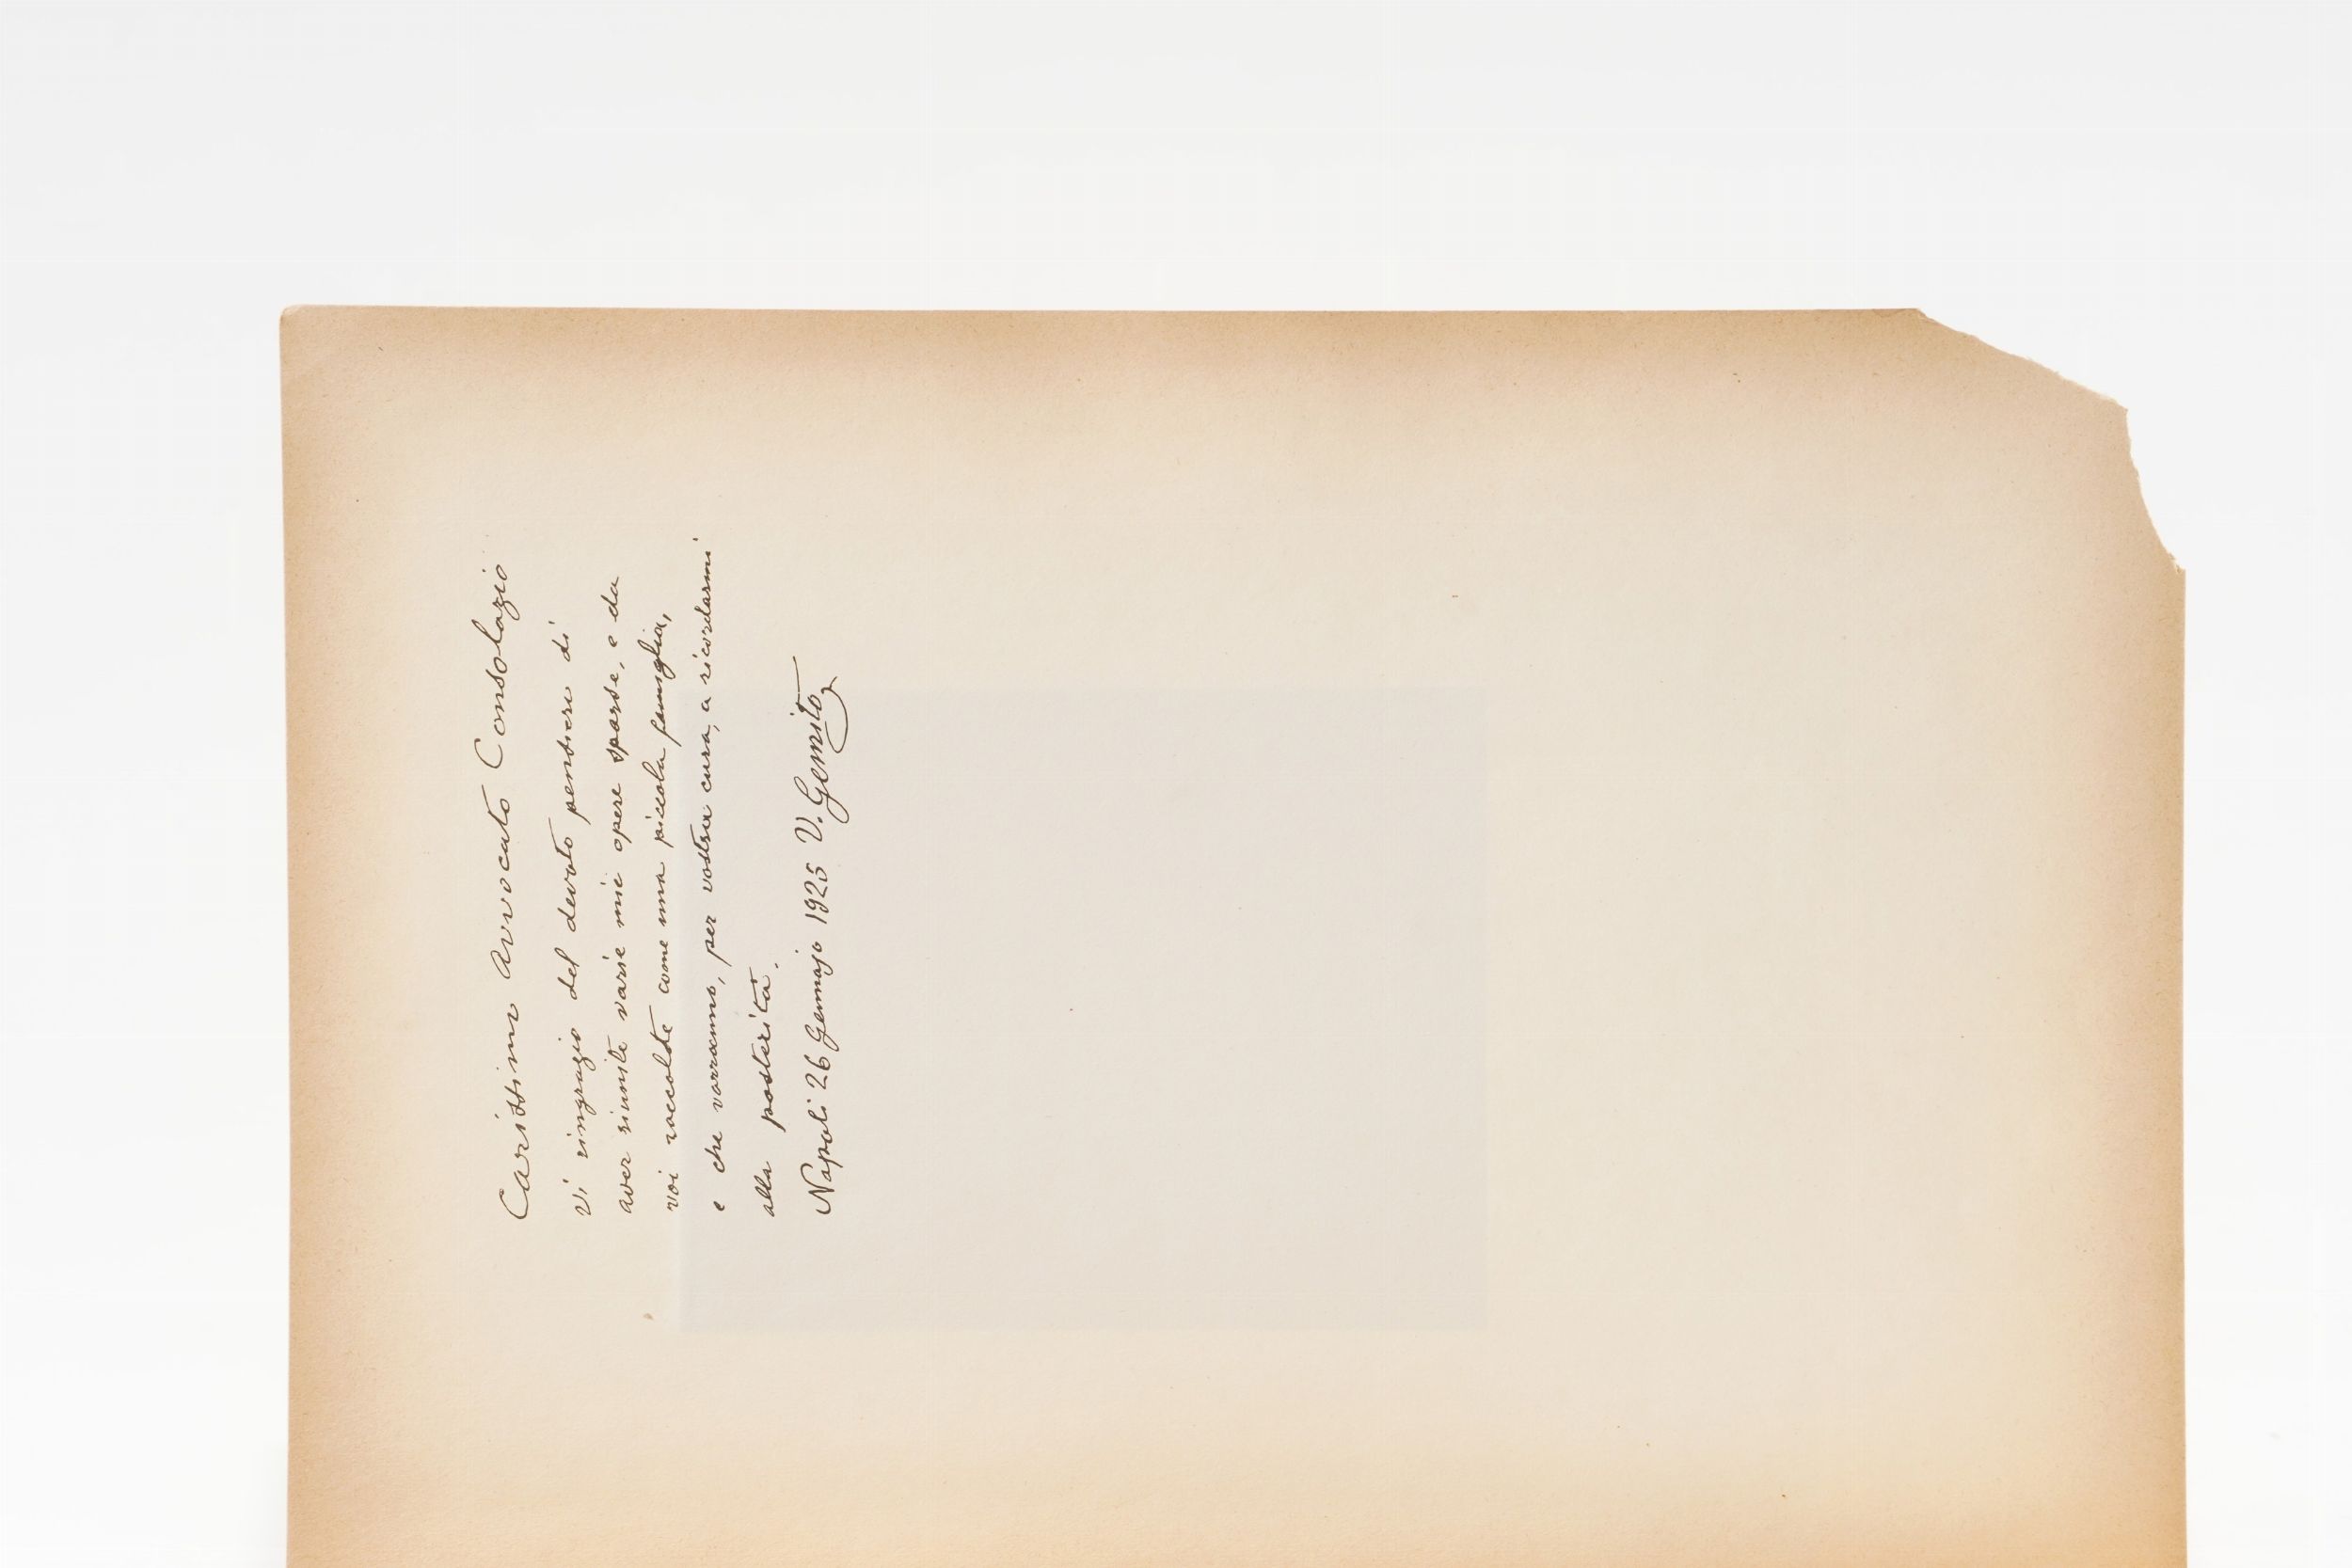 Carissimo Avvocato Consolazio
Vi ringrazio del devoto pensiero di
aver riunite varie mie opere sparse, e da
voi raccolte come una piccola famiglia,
e che varranno, per vostra cura, a ricordarmi
alla posterità.
Napoli 26 Gennajo 1925 V. Gemito